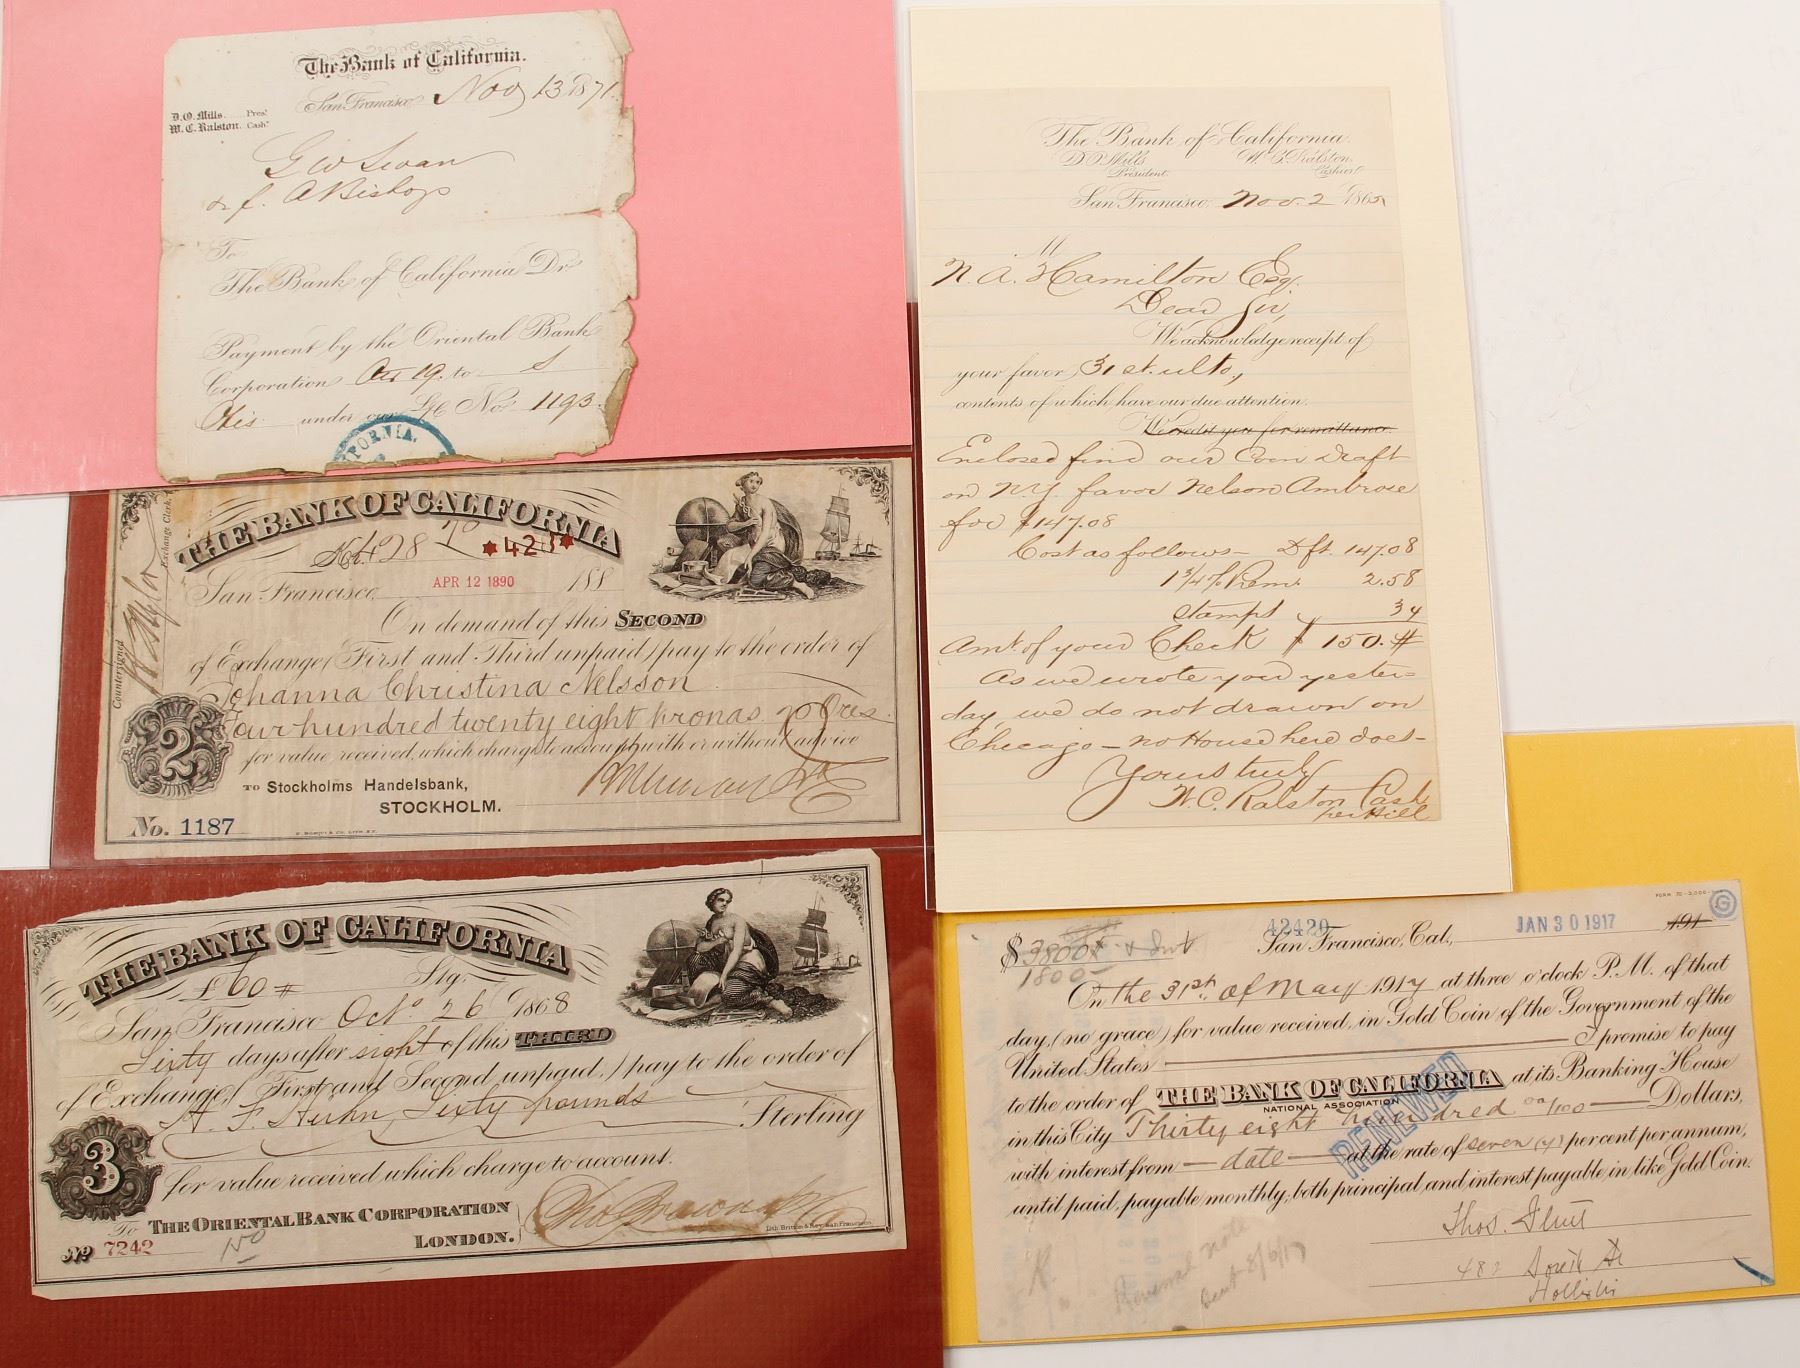 The Bank of California.
San Francisco Nov 13 1871.
D.O. Mills Prest
W.C. Ralston. Cashr
G W Swan
A Bishop
To
The Bank of California Dr
Payment by the Oriental Bank
Corporation Oct 19. to
under our No. 1193
FORNIA.
THE BANK OF CALIFORNIA
428 *428*
San Francisco APR 12 1890 188
On demand of this SECOND
of Exchange (First and Third unpaid) pay to the order of
Johanna Christina Nelsson
Four hundred twenty eight Kronas 20 Ores
for value received, which charge to account with or without advice
TO Stockholms Handelsbank,
STOCKHOLM.
2
No. 1187
Countersigned
Exchange Clerk
THE BANK OF CALIFORNIA
£60 # Stg.
San Francisco Oct. 26 1868
Sixty days after sight of this THIRD
of Exchange, (First and Second unpaid,) pay to the order of
Sixty pounds
Sterling
for value received which charge to account.
3
To THE ORIENTAL BANK CORPORATION
LONDON.
No 7242
Lith. Britton & Rey, San Francisco.
The Bank of California.
D.O. Mills W.C. Ralston
President. Cashier.
San Francisco, Nov. 2 186
M
N. A. Hamilton Esq.
Dear Sir,
We acknowledge receipt of
your favor 31st. ulto,
contents of which have our due attention.
We credit you for remittance.
Enclosed find our Coin Draft
on N.Y. favor Nelson Ambrose
for $147.08
Cost as follows - Dft. 147.08
1 3/4 % Prem. 2.58
Stamps 34
Amt. of your Check $ 150.#
As we wrote you yester=
day, we do not drawn on
Chicago - no House here does -
Yours truly
W.C. Ralston Cash
per Hill
42420
JAN 30 1917 191
G
$3800
1800
San Francisco, Cal.,
On the 31st. of May 1917 at three o'clock P.M. of that
day, (no grace) for value received, in Gold Coin of the Government of the
United States I promise to pay
to the order of THE BANK OF CALIFORNIA at its Banking House
NATIONAL ASSOCIATION
in this City Thirty eight hundred 00/100 Dollars,
with interest from date at the rate of seven (7) per cent per annum,
until paid, payable monthly, both principal and interest payable in like Gold Coin.
RENEWED
Thos. Flint
Hollister
Renewal note
8/6/17